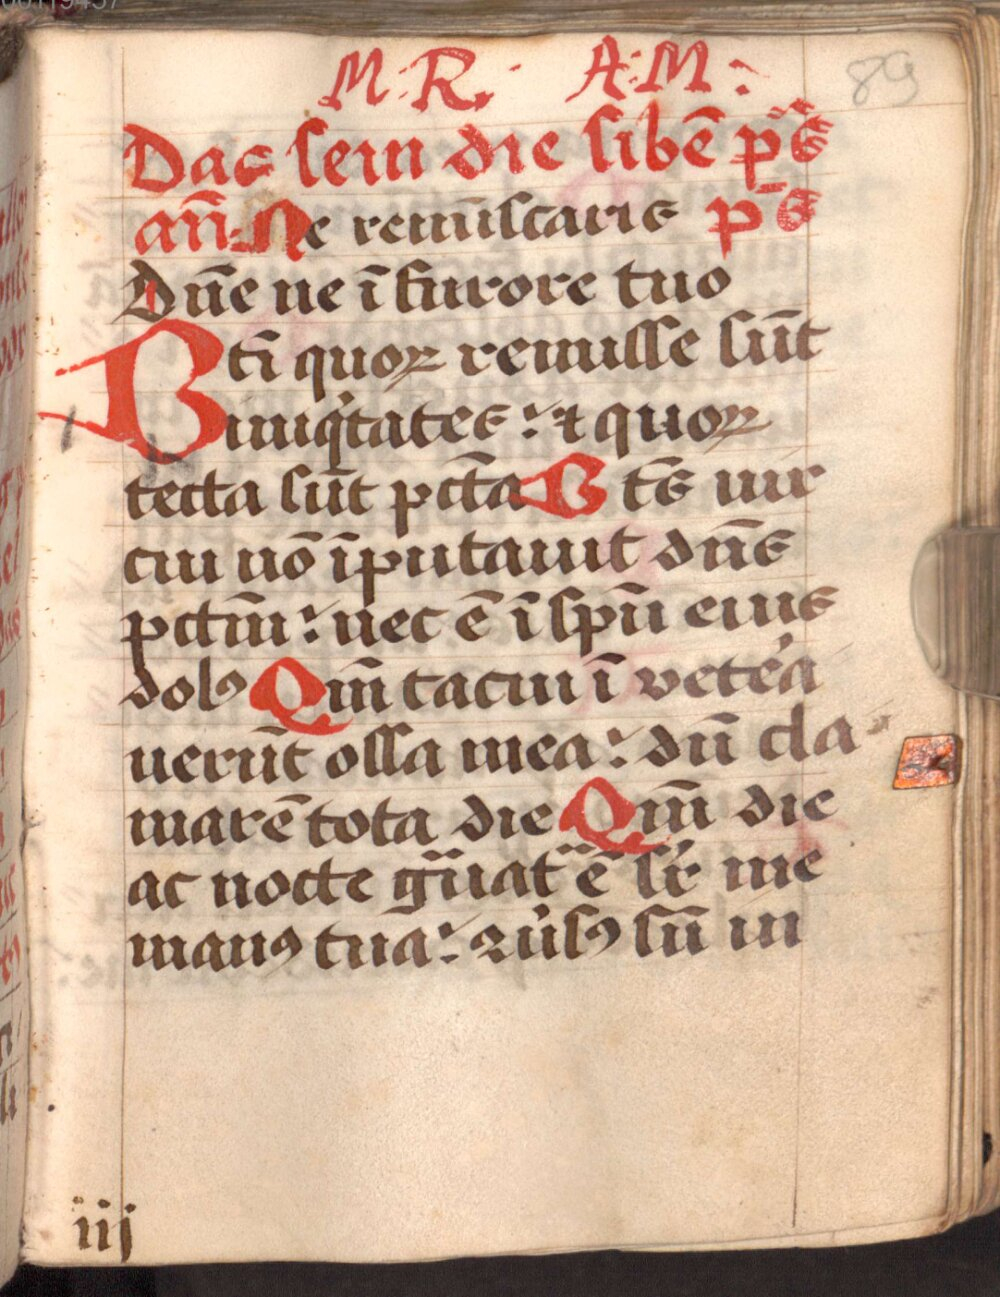 M. R. A. M.
89
Das sein die sibē ps̄
añ. Ne remīscaris ps̄
Dñe ne ī furore tuo
Bti quorꝝ remisse sūt
iniqͥtates : ⁊ quorꝝ
tecta sūt pctā Bts̄ uir
cui nō īputauit dñs
pctm̄ : nec ē ī spū eius
dolꝰ Qm̄ tacui ī vetea
uerūt ossa mea : dū cla
marē tota die Qm̄ die
ac nocte gͣuat ē sr̄ me
manꝰ tua : ꝯuͥsꝰ sū in
iij